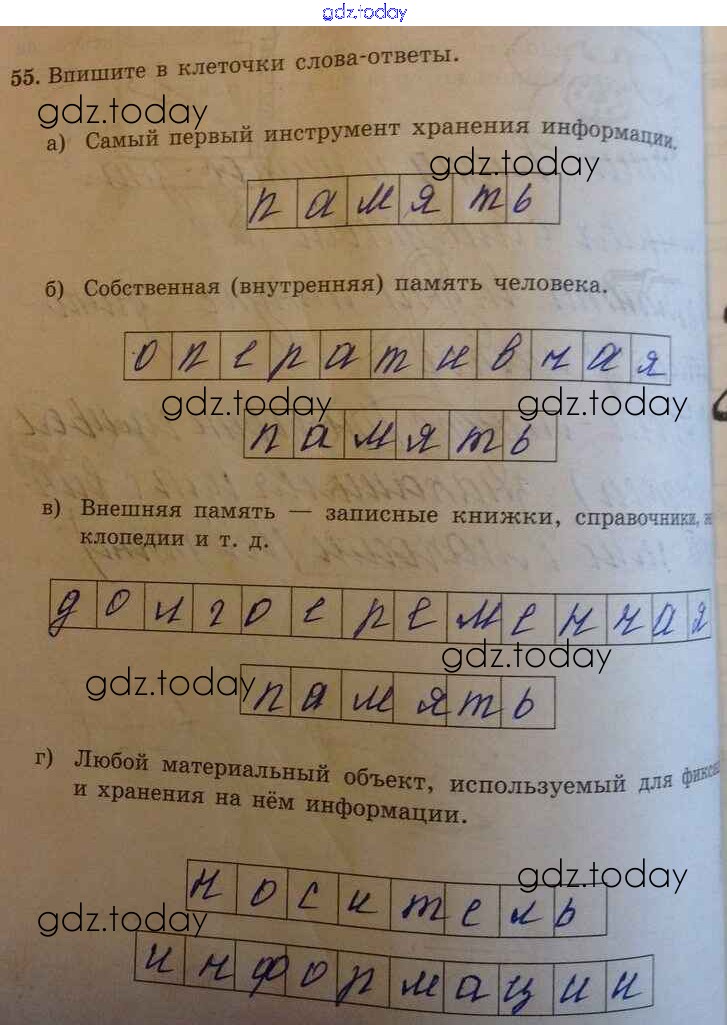 gdz.today
55. Впишите в клеточки слова-ответы.
gdz.today
а) Самый первый инструмент хранения информации.
gdz.today
память
б) Собственная (внутренняя) память человека.
оперативная
gdz.today gdz.today
память
в) Внешняя память — записные книжки, справочники,
клопедии и т. д.
долговременная
gdz.today
gdz.today
память
г) Любой материальный объект, используемый для фикса
и хранения на нём информации.
gdz.today
носитель
gdz.today
информации